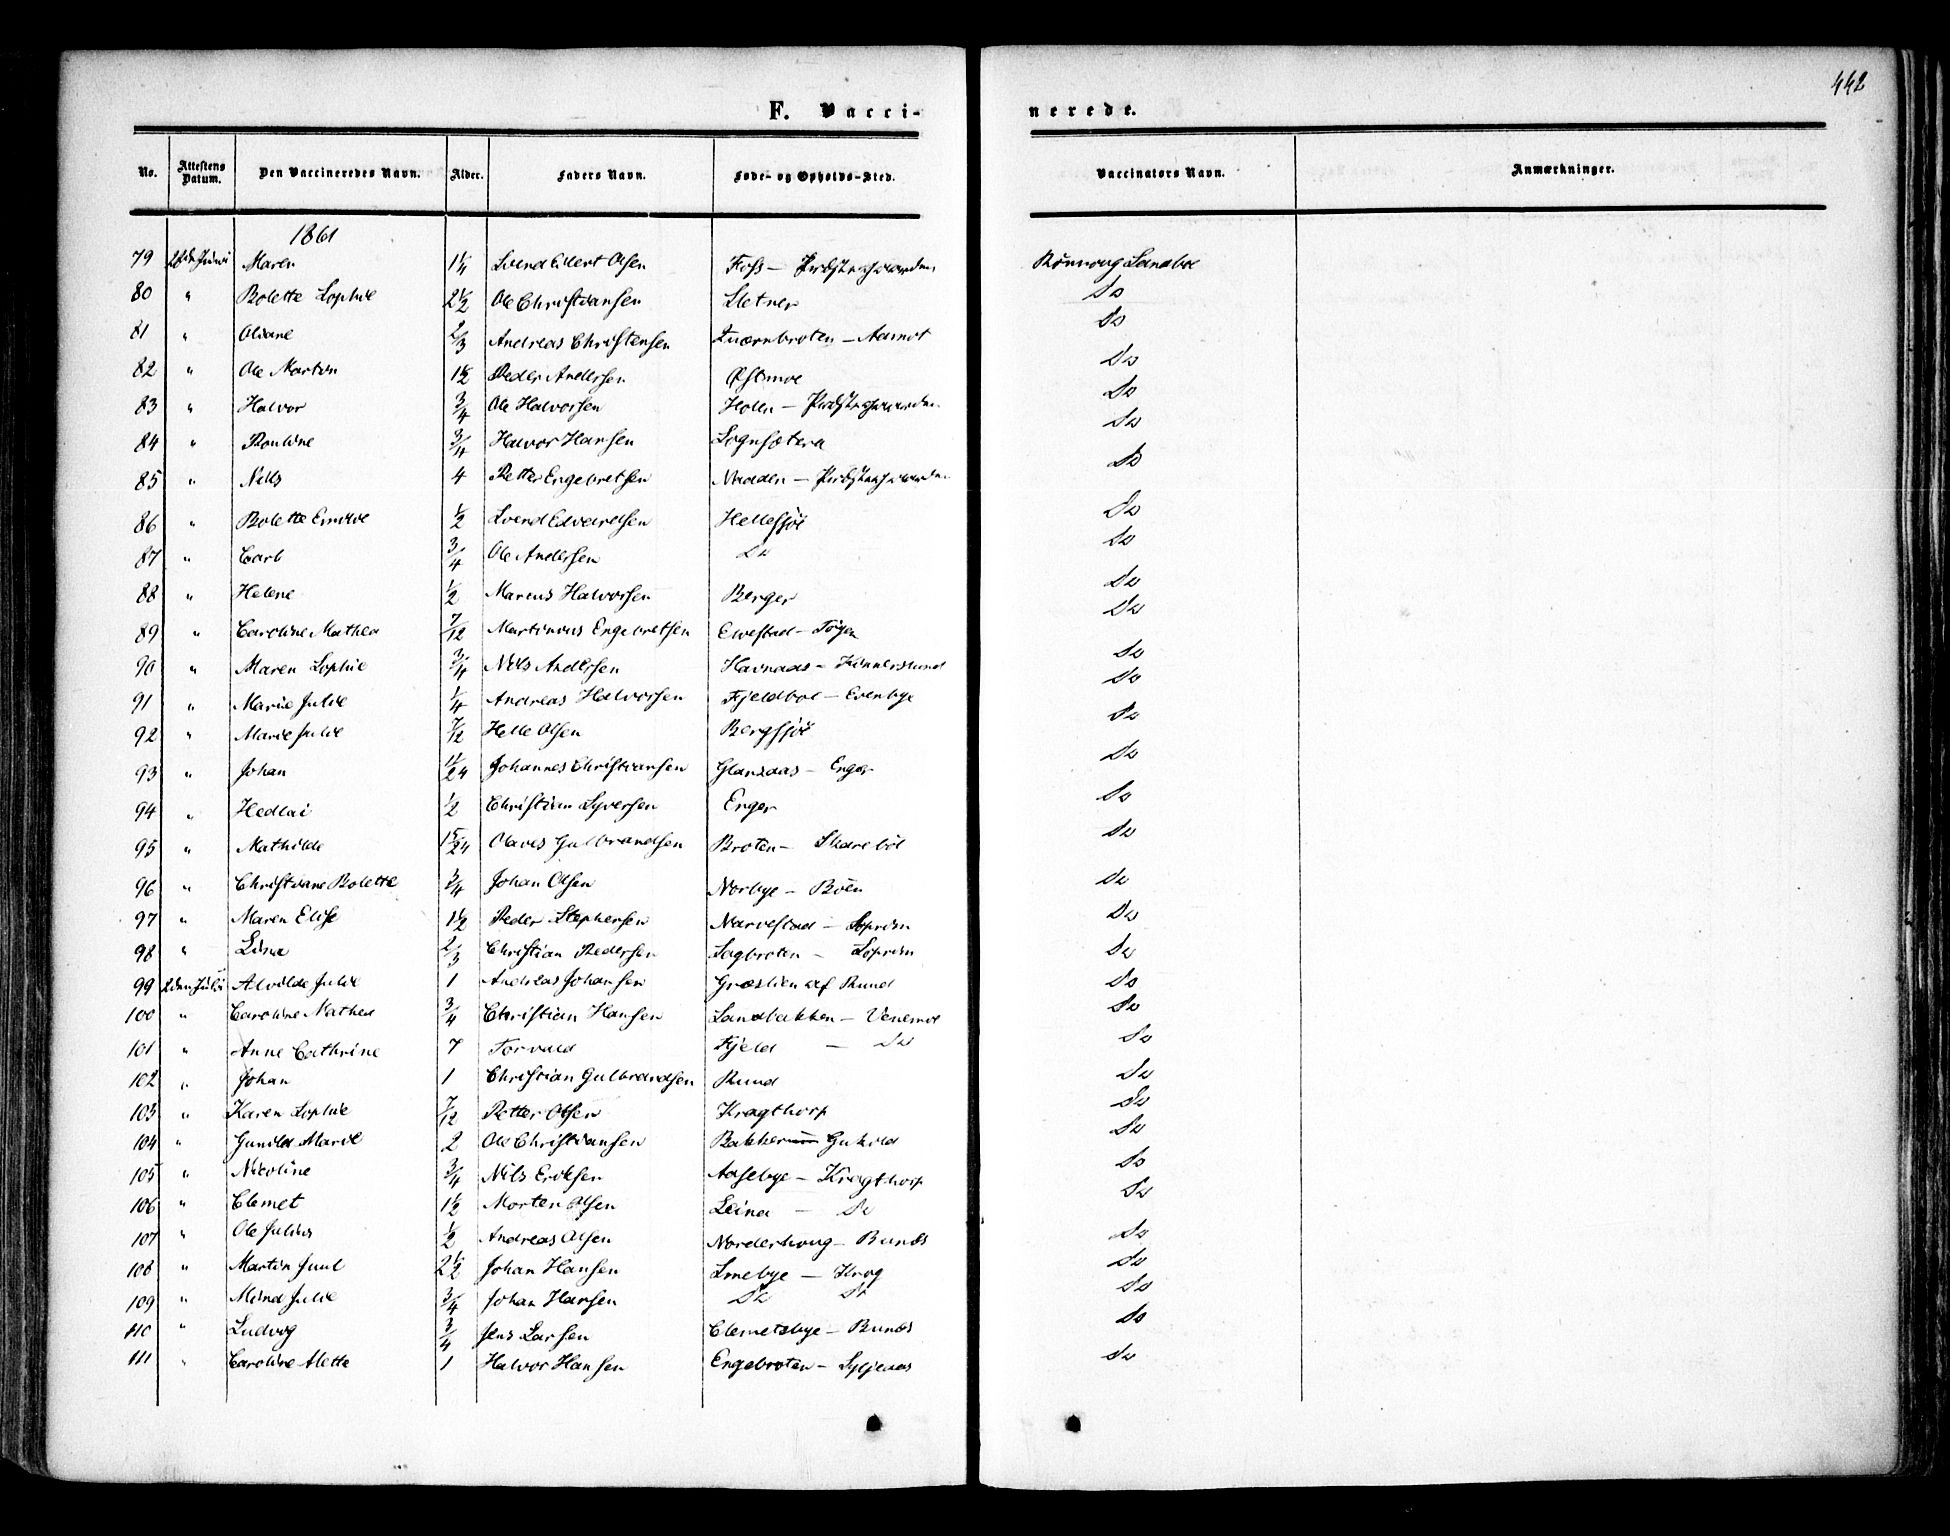 442
F. Vacci-nerede.
No. Attestens Datum. Den Vaccineredes Navn. Alder. Faders Navn. Føde- og Opholds-Sted. Vaccinators Navn. Anmærkninger.
1861
79 28de Juni Maren 1 1/4 Svend Edert Olsen Foss — Præstegaarden Rønnoug Sandboe
80 " Bolette Sophie 2 1/2 Ole Christiansen Sletner Do
81 " Oliane 2/3 Andreas Christensen Kværnbroten — Aamot Do
82 " Ole Martin 1 1/2 Peder Andersen Østmoe Do
83 " Halvor 3/4 Ole Halvorsen Holen — Præstegaarden Do
84 " Pauline 3/4 Halvor Hansen Sognsætera Do
85 " Nils 4 Petter Engebretsen Naaden — Præstegaarden Do
86 " Bolette Emilie 1/2 Svend Edvardsen Hellesjöe Do
87 " Carl 3/4 Ole Andersen Do Do
88 " Helene 1/2 Marcus Halvorsen Berger Do
89 " Caroline Mathea 7/12 Martinius Engebretsen Elvestad — Toyen Do
90 " Maren Sophie 3/4 Nils Andersen Havnaas — Kinnerslund Do
91 " Marie Julie 1/4 Andreas Halvorsen Fjeldboe — Evenbye Do
92 " Marie Julie 7/12 Helle Olsen Bergsjöe Do
93 " Johan 11/24 Johannes Christiansen Glansaas — Enger Do
94 " Hedlai 1/2 Christian Syversen Enger Do
95 " Mathilde 15/24 Olaves Gulbrandsen Broten — Skareböl Do
96 " Christiane Bolette 3/4 Johan Olsen Norbye — Böen Do
97 " Maren Elise 1 1/2 Peder Stephensen Narvestad — Soprim Do
98 " Lina 2/3 Christian Pedersen Sagbroten — Soprim Do
99 2den Juli Alvilde Julie 1 Andreas Johansen Græslien af Rund Do
100 " Caroline Mathea 3/4 Christian Hansen Sandbakken — Venemoe Do
101 " Anne Cathrine 7 Torvald Fjeld — Do Do
102 " Johan 1 Christian Gulbrandsen Rund Do
103 " Karen Sophie 7/12 Petter Olsen Kragthorp Do
104 " Gunild Marie 2 Ole Christiansen Bakken Gukild Do
105 " Nicoline 3/4 Nils Eriksen Aasebye — Kragthorp Do
106 " Clemet 1 1/2 Morten Olsen Leina — Do Do
107 " Ole Julius 1/2 Andreas Olsen Norderhoug — Bunæs Do
108 " Martin Juul 2 1/2 Johan Hansen Smebye — Krog Do
109 " Mina Julie 3/4 Johan Hansen Do Do Do
110 " Ludvog 3/4 Jens Larsen Clemetsbye — Bunæs Do
111 " Caroline Alette 1 Halvor Hansen Engebroten — Syljeaas Do